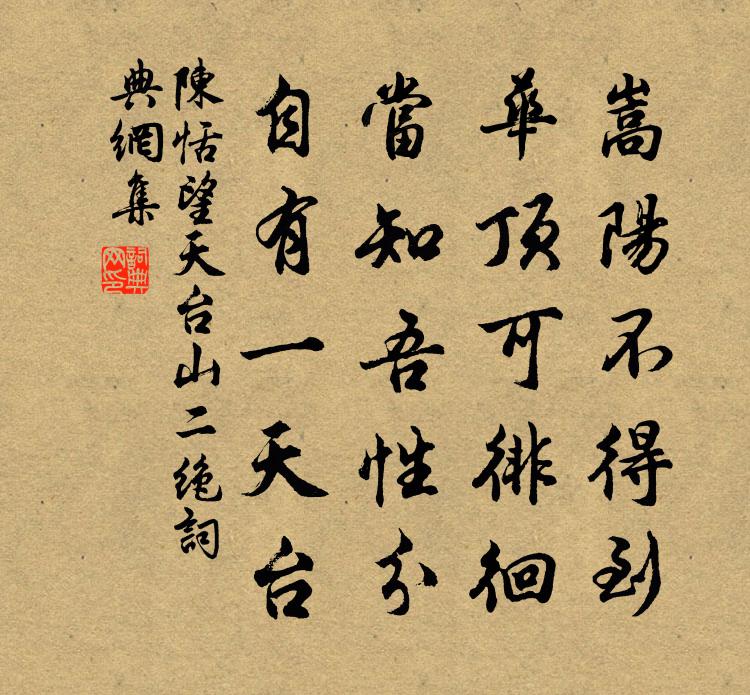 嵩陽不得到
華頂可徘徊
當知吾性分
自有一天台
陳恬望天台山二絶詞
典網集
詞典
网印